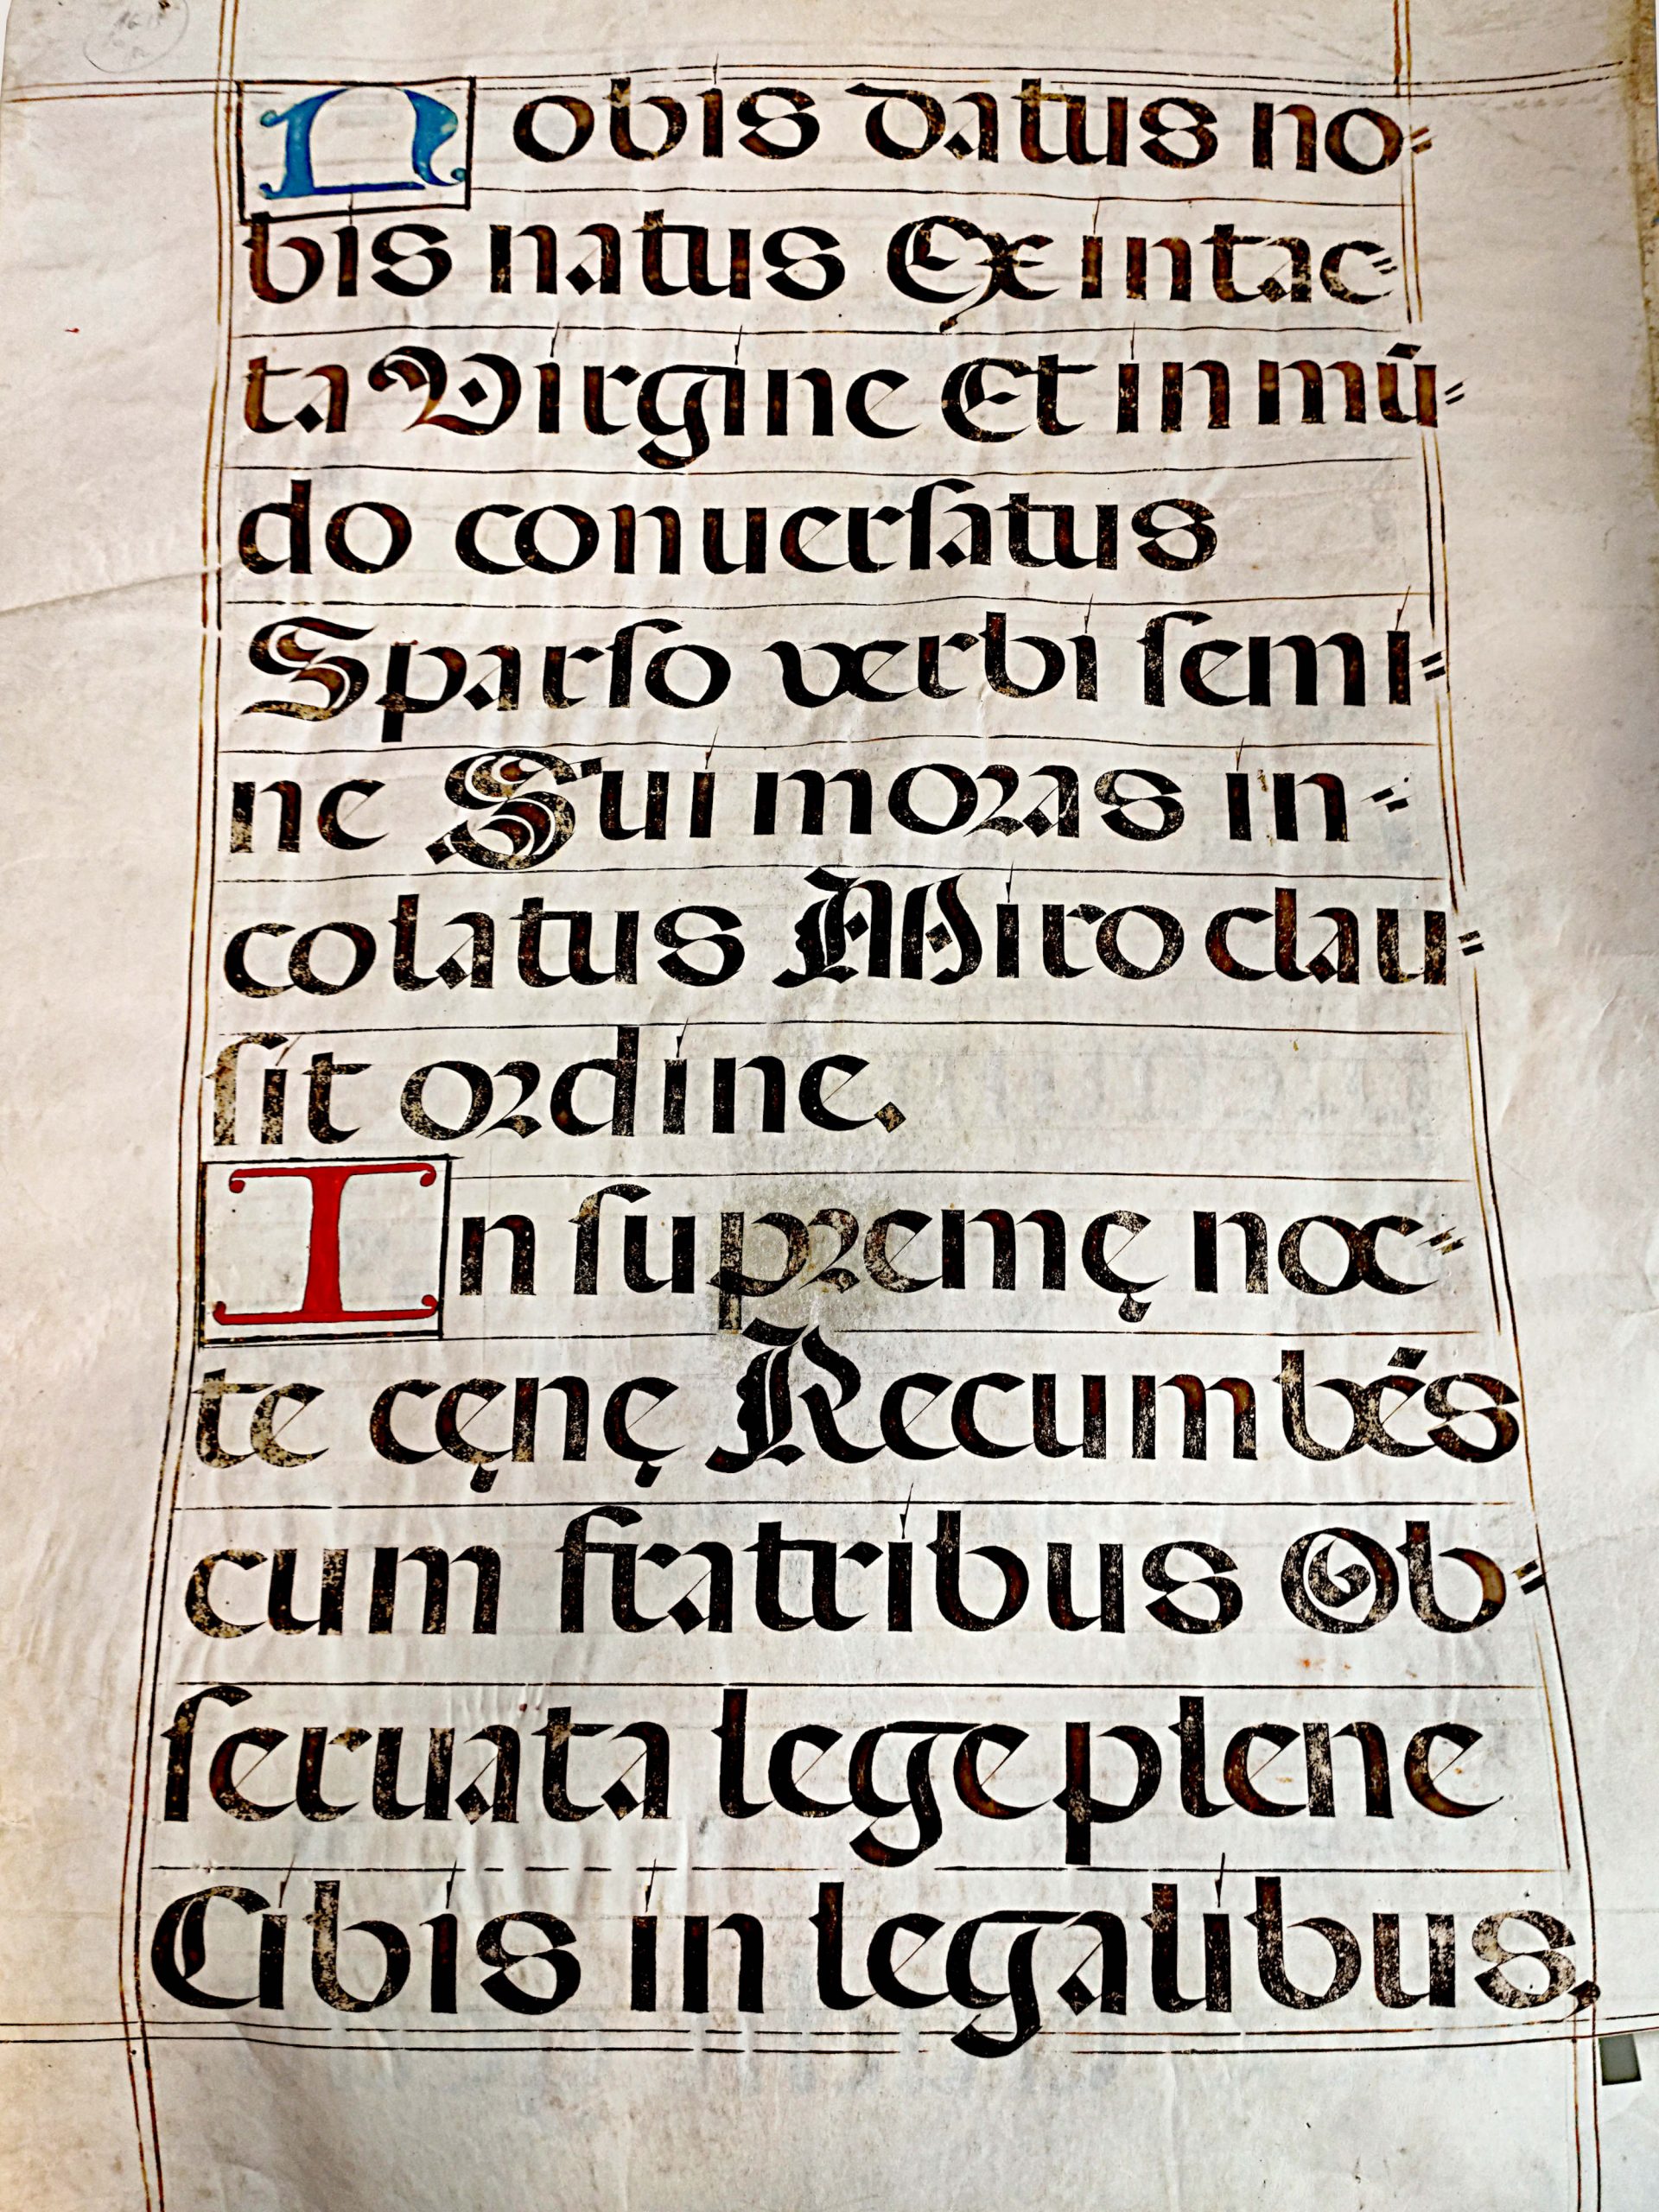 Nobis datus no=
bis natus Ex intac=
ta Virgine Et in mū=
do conuerſatus
Sparſo verbi ſemi=
ne Sui moras in=
colatus Miro clau=
ſit ordine.
In ſupremę noc=
te cęnę Recumbēs
cum fratribus Ob=
ſeruata lege plene
Cibis in legalibus,